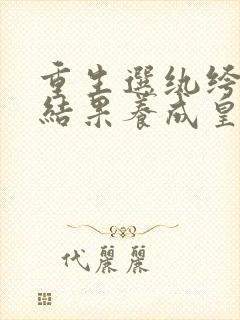 重生選紈絝
結果養成皇
代麗麗